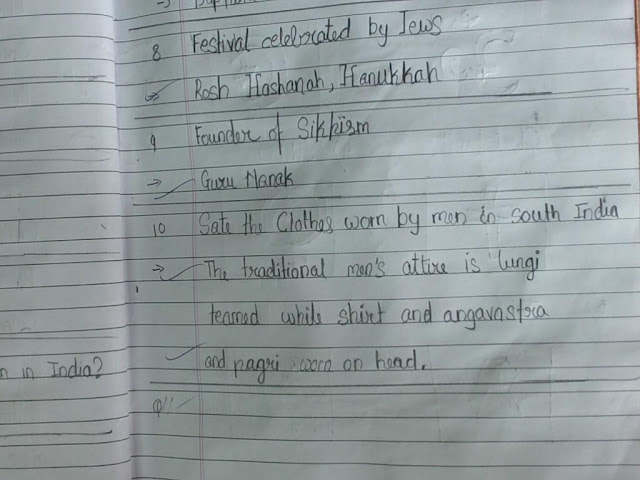 8 Festival celebrated by Jews
→ Rosh Hashanah, Hanukkah
9 Founder of Sikhism
→ Guru Nanak
10 Sate the Clothes worn by men in south India
→ The traditional men's attire is lungi
teamed while shirt and angavastra
n in India?
and pagri worn on head.
Q11